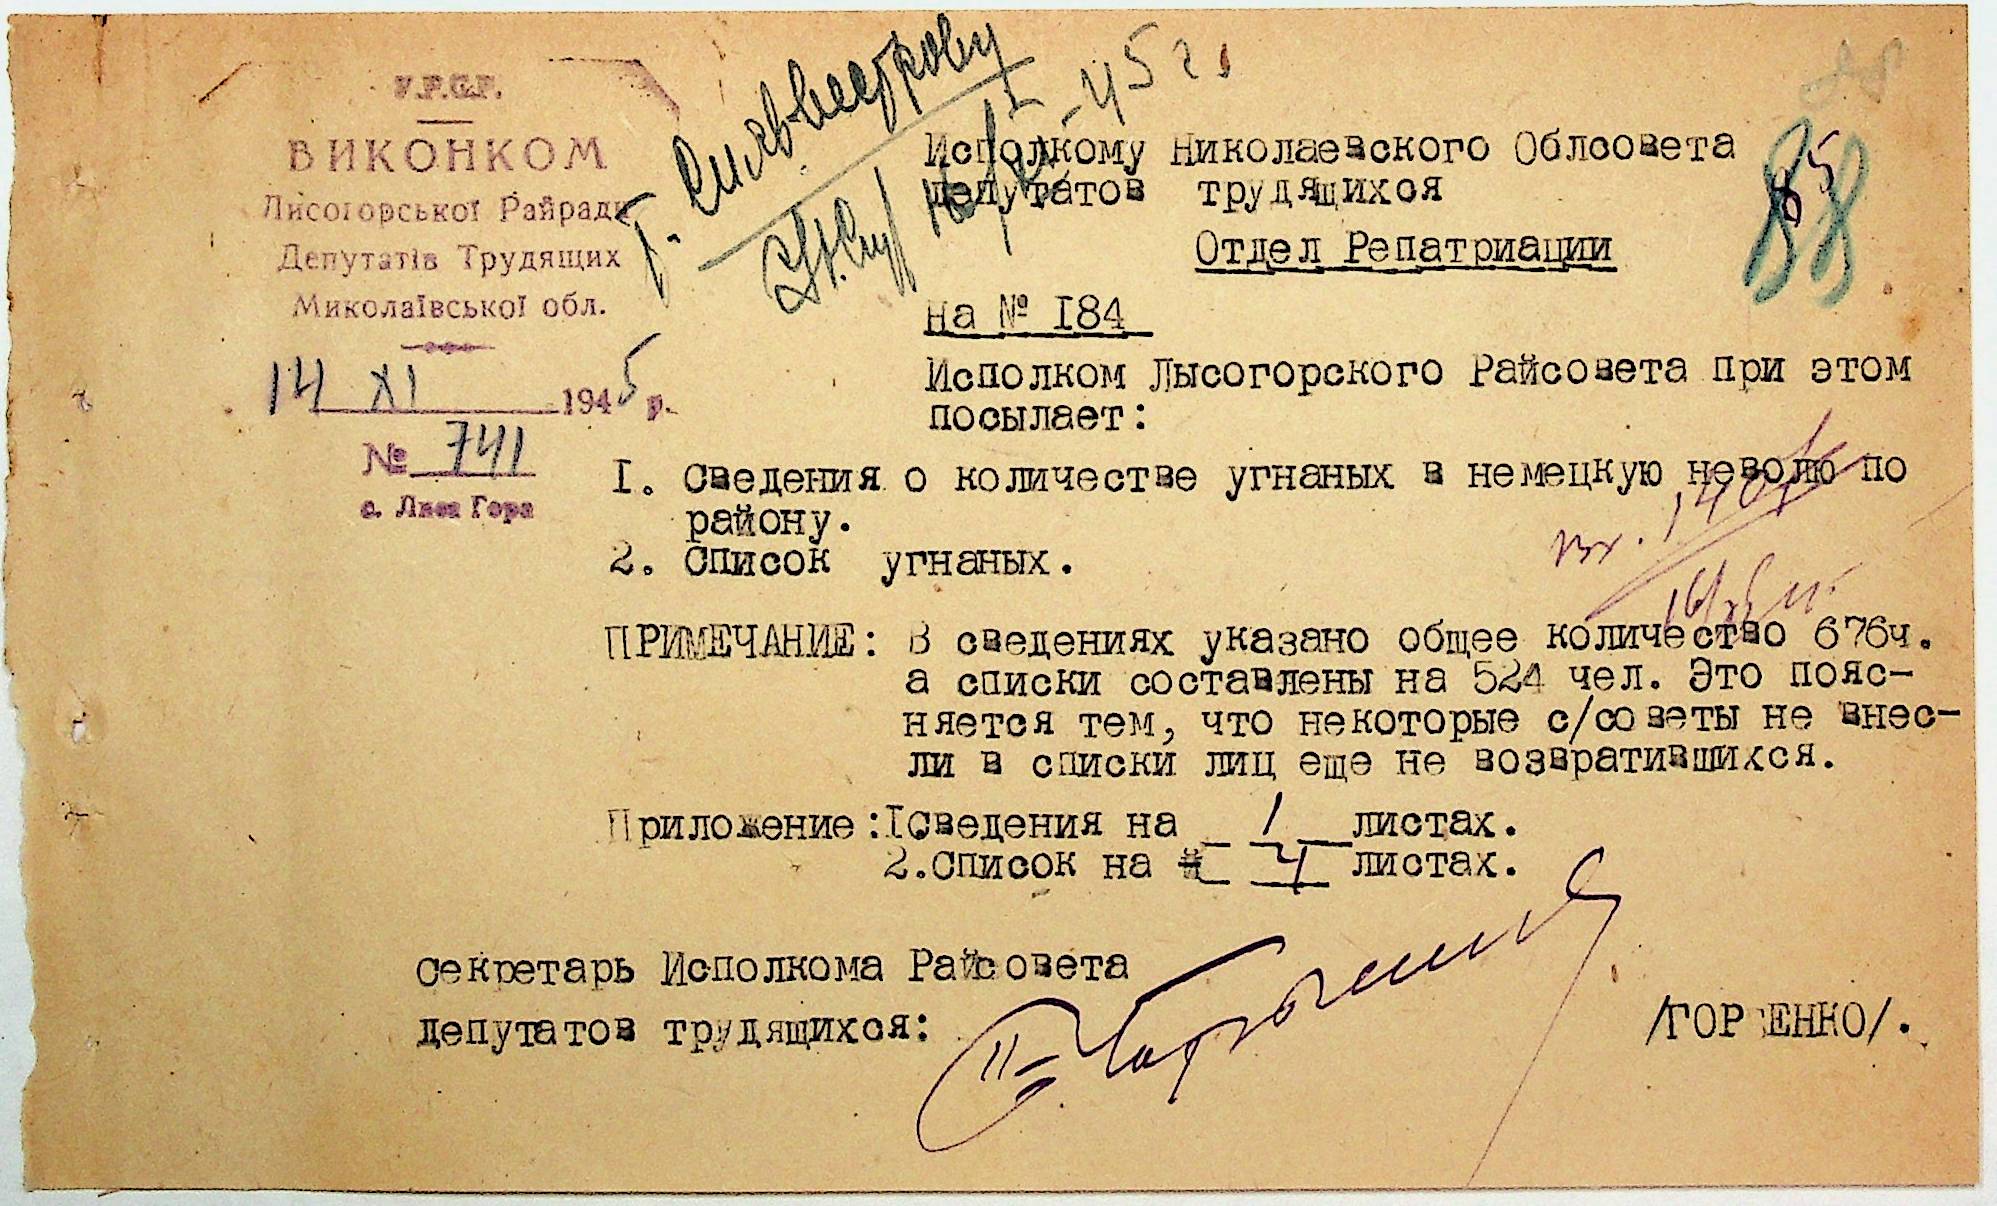 У.Р.С.Р.
ВИКОНКОМ
Лисогорської Райради
Депутатів Трудящих
Миколаївської обл.
14 XI 1945 р.
№ 741
с. Лиса Гора
Т. Сильвестрову
45 г.
85
88
Исполкому Николаевского Облсовета
депутатов трудящихся
Отдел Репатриации
на № I84
Исполком Лысогорского Райсовета при этом
посылает:
I. Сведения о количестве угнаных в немецкую неволю по
району.
2. Список угнаных.
вх.
ПРИМЕЧАНИЕ: В сведениях указано общее количество 676ч.
а списки составлены на 524 чел. Это пояс-
няется тем, что некоторые с/советы не внес-
ли в списки лиц еще не возвратившихся.
Приложение: I сведения на 1 листах.
2. Список на 4 листах.
Секретарь Исполкома Райсовета
депутатов трудящихся:
/ГОР ЕНКО/.